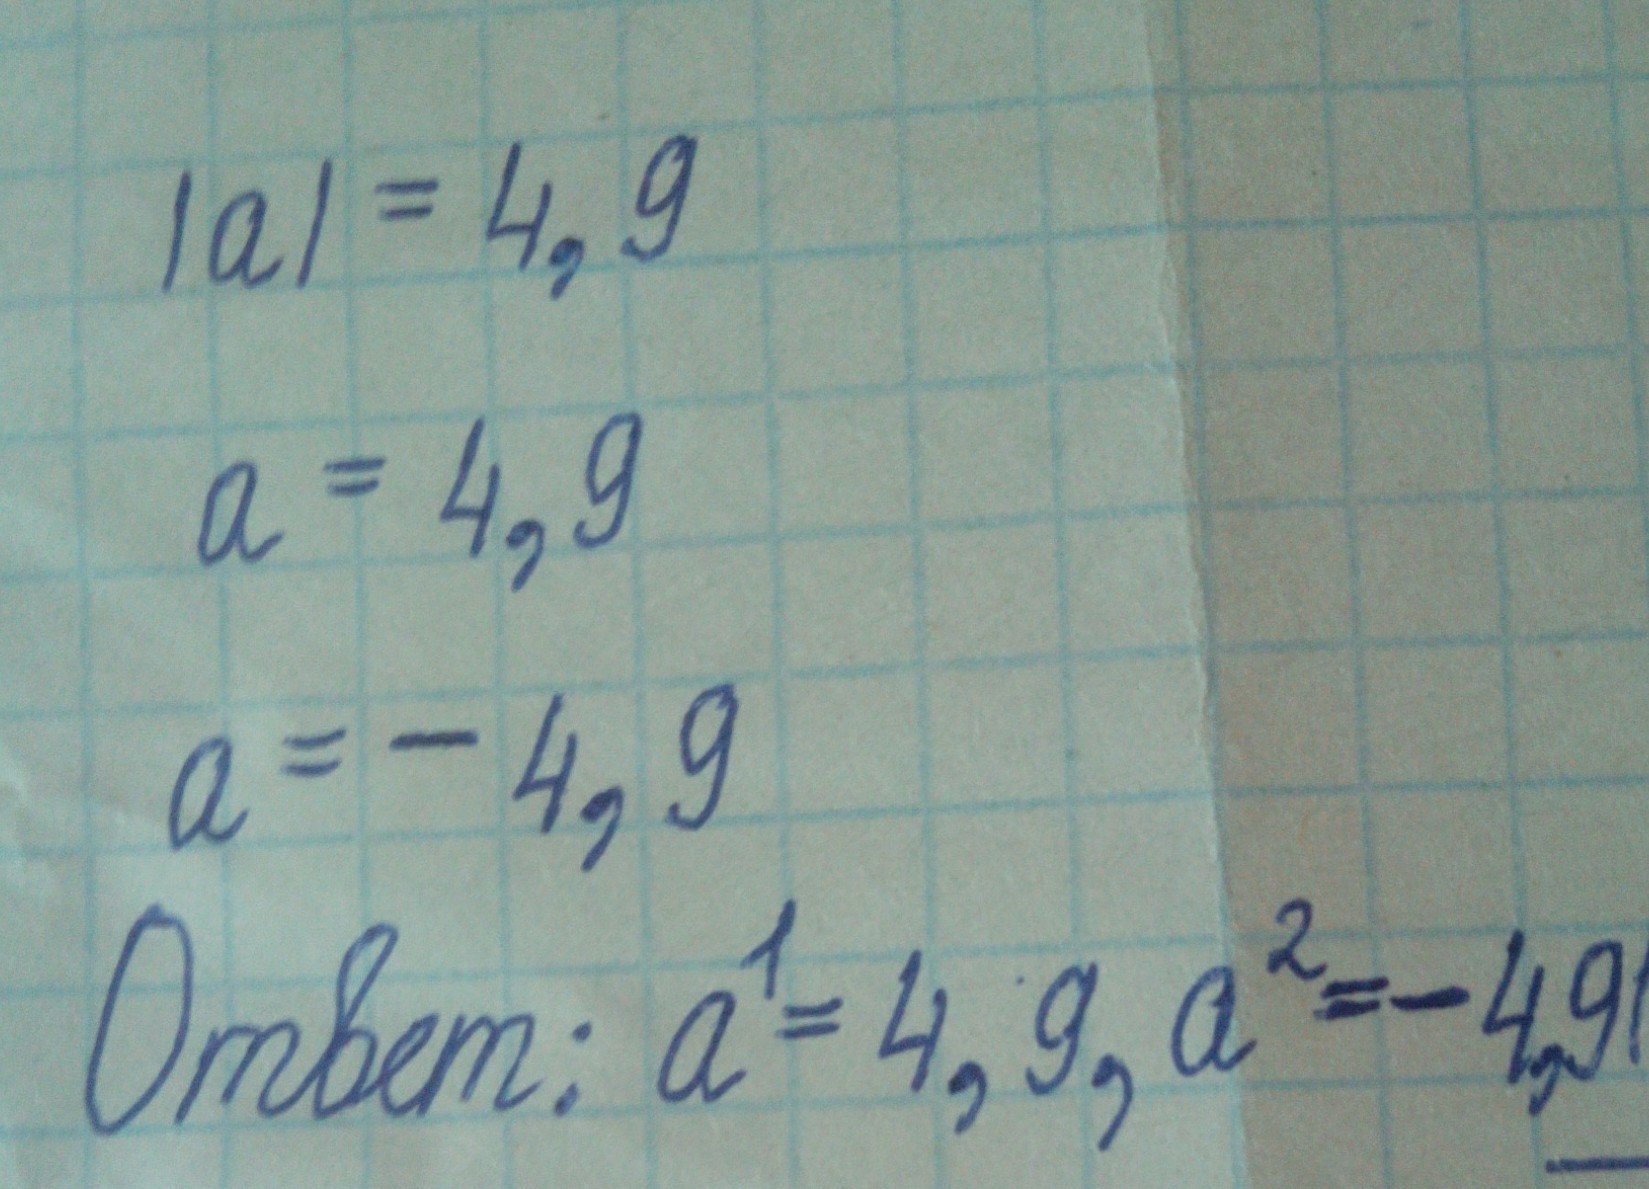 |a| = 4,9
a = 4,9
a = - 4,9
Ответ: a¹ = 4,9, a² = - 4,9